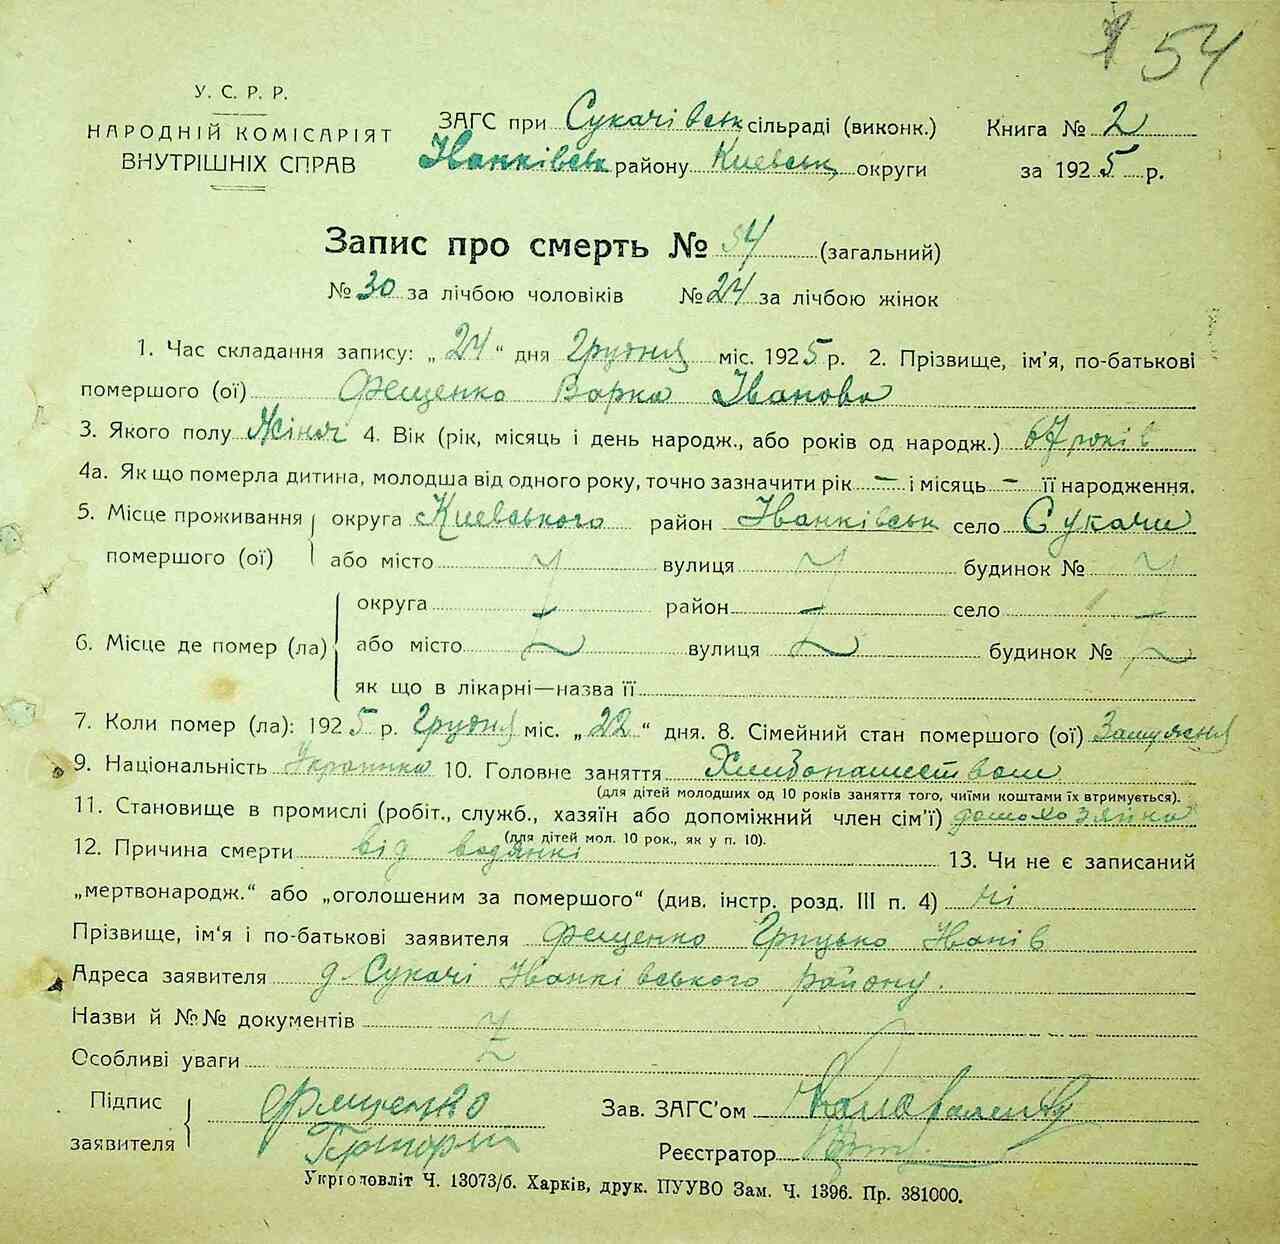 54
У. С. Р. Р.
НАРОДНІЙ КОМІСАРІЯТ
ВНУТРІШНІХ СПРАВ
ЗАГС при Сукачівськ сільраді (виконк.)
Іванківськ району Киевськ округи
Книга № 2
за 1925 р.
Запис про смерть № 54 (загальний)
№ 30 за лічбою чоловіків № 24 за лічбою жінок
1. Час складання запису: „24“ дня Грудня міс. 1925 р. 2. Прізвище, ім'я, по-батькові
помершого (ої) Фещенко Варка Іванова
3. Якого полу Жіноч 4. Вік (рік, місяць і день народж., або років од народж.) 67 років
4а. Як що померла дитина, молодша від одного року, точно зазначити рік — і місяць — її народження.
5. Місце проживання округа Киевського район Іванківськ село Сукачи
помершого (ої) або місто вулиця будинок №
округа район село
6. Місце де помер (ла) або місто вулиця будинок №
як що в лікарні—назва її
7. Коли помер (ла): 1925 р. Грудня міс. „22“ дня. 8. Сімейний стан помершого (ої) Замужня
9. Національність Українка 10. Головне заняття Хлибопашеством
(для дітей молодших од 10 років заняття того, чиїми коштами їх втримується).
11. Становище в промислі (робіт., служб., хазяїн або допоміжний член сім'ї) домохозяйка
(для дітей мол. 10 рок., як у п. 10).
12. Причина смерти від водянкі 13. Чи не є записаний
„мертвонародж.“ або „оголошеним за помершого“ (див. інстр. розд. III п. 4) ні
Прізвище, ім'я і по-батькові заявителя Фещенко Грицько Іванів
Адреса заявителя д. Сукачі Іванківського району.
Назви й №№ документів
Особливі уваги
Підпис
заявителя Фещенко
Григорій
Зав. ЗАГС'ом
Реєстратор
Укрголовліт Ч. 13073/б. Харків, друк. ПУУВО Зам. Ч. 1396. Пр. 381000.